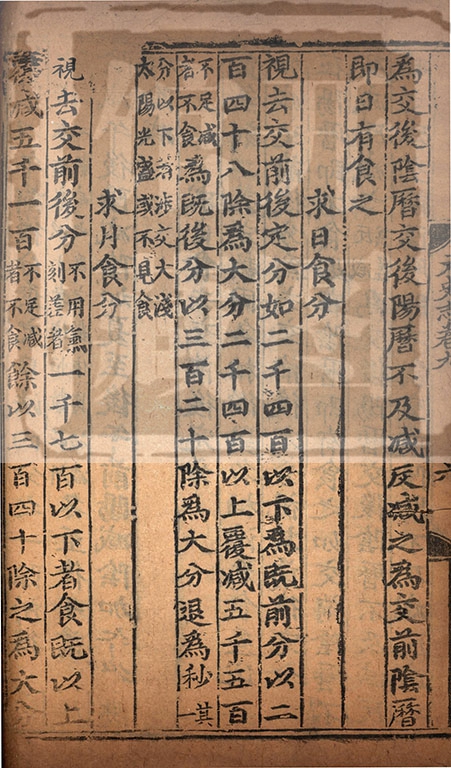 為交後陰曆交後陽曆不及減反減之為交前陰曆
即日有食之
求日食分
視去交前後定分如二千四百以下為既前分以二
百四十八除為大分二千四百以上覆減五千五百
不足減者不食為既後分以三百二十除為大分退為秒其一
分以下者涉交大淺太陽光盛或不見食
求月食分
視去交前後分不用氣刻差者一千七百以下者食既以上
覆減五千一百不足減者不食餘以三百四十除之為大分
六